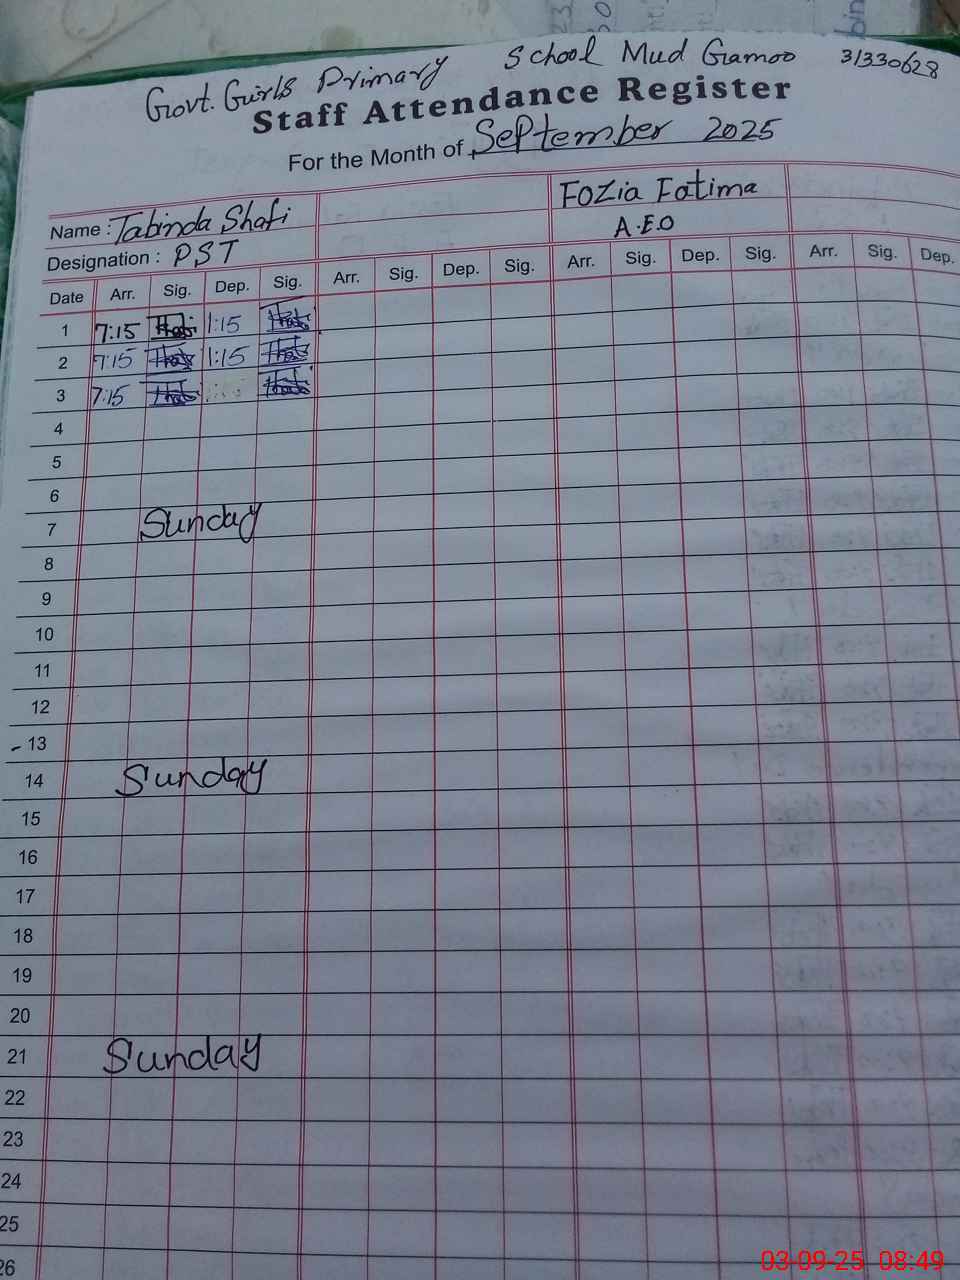 Govt. Girls Primary School Mud Gamoo 31330628
Staff Attendance Register
For the Month of September 2025
Name : Tabinda Shafi Fozia Fatima
Designation : PST A.E.O
Date Arr. Sig. Dep. Sig. Arr. Sig. Dep. Sig. Arr. Sig. Dep. Sig. Arr. Sig. Dep.
1 7:15 1:15
2 7:15 1:15
3 7:15
4
5
6
7 Sunday
8
9
10
11
12
13
14 Sunday
15
16
17
18
19
20
21 Sunday
22
23
24
25
26
03-09-25 08:49